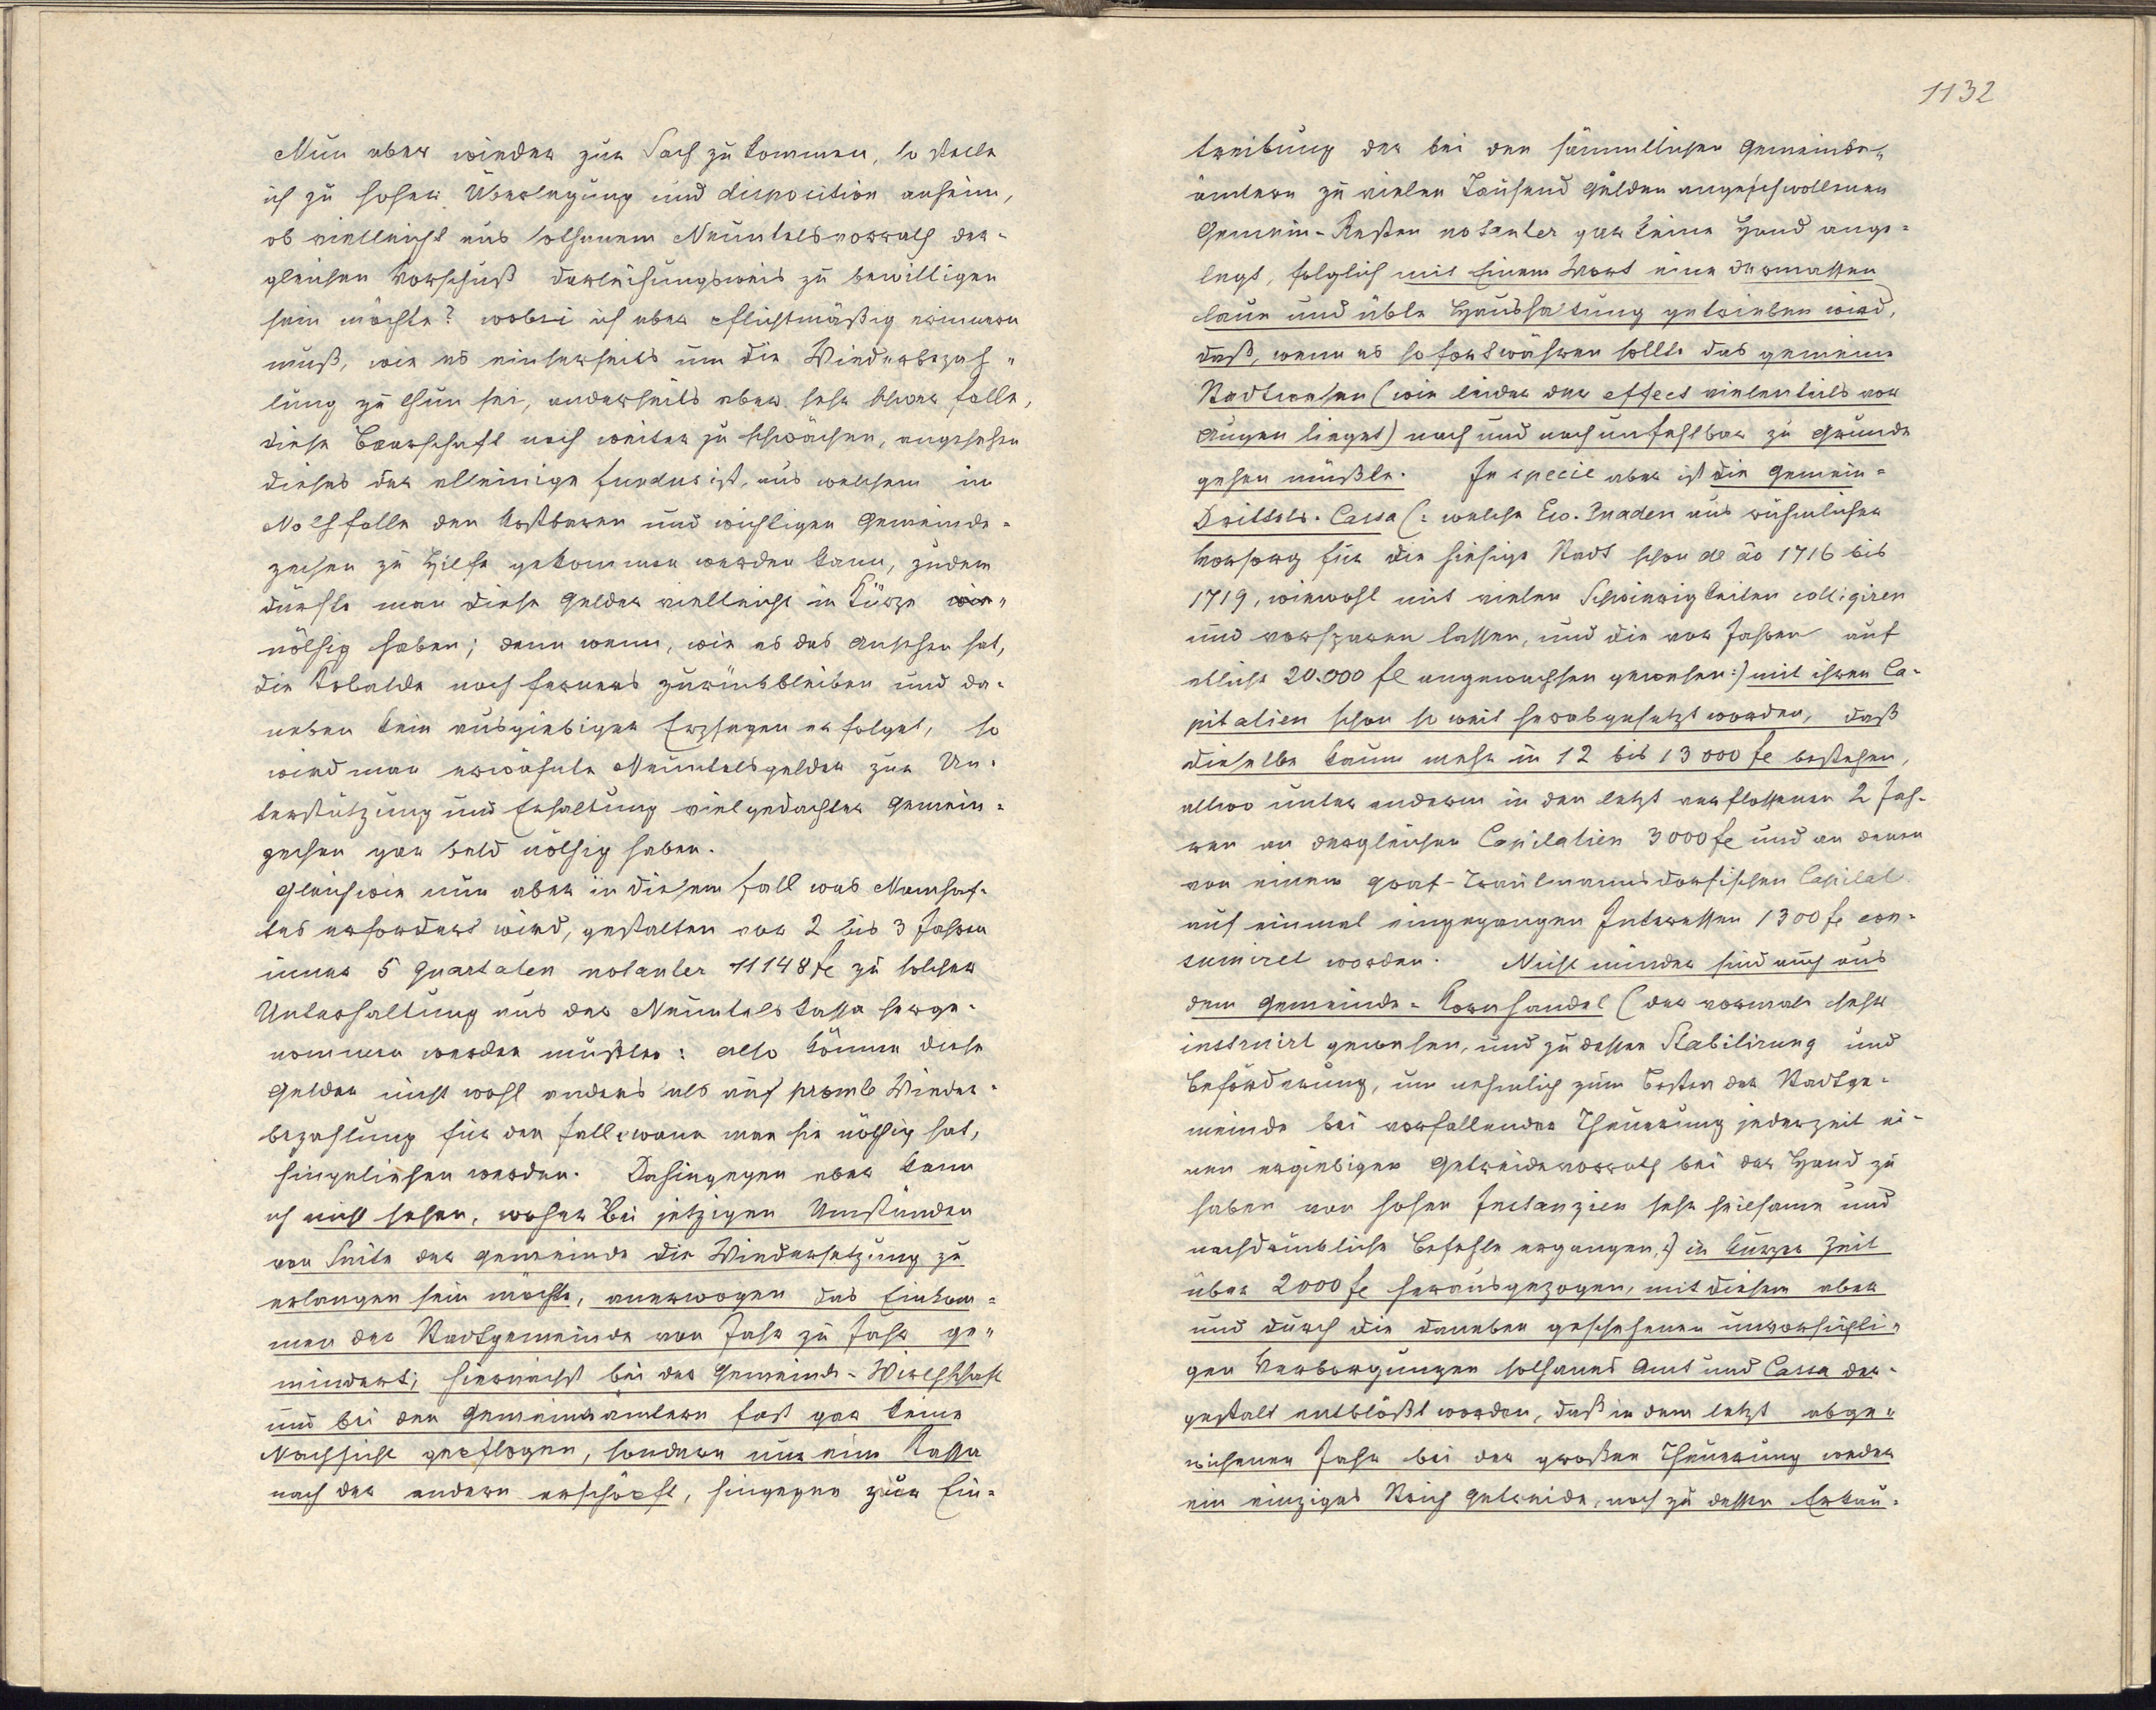 Nun aber wieder zur Sach zu kommen, so stelle
ich zu hoher Überlegung und disposition anheim,
ob vielleicht aus solhanem Neuntelsvorrath der-
gleichen Vorschuß darleihungsweis zu bewilligen
sein möchte? wobei ich aber pflichtmäßig erinnern
muß, wie es einerseits um die Wiederbezah-
lung zu thun sei, anderseits aber sehr schwer falle,
diese Baarschaft noch weiter zu schwächen, angesehen
dieses der alleinige fundus ist, aus welchem im
Nothfalle den kostbaren und wichtigen Gemeinde-
zechen zu Hilfe gekommen werden kann, zudem
dürfte man diese Gelder vielleicht in Kürze
nöthig haben; dann wenn, wie es das Ansehen hat,
die Kobalde noch ferners zurückbleiben und da-
neben kein ausgiebiger Erzsegen erfolget, so
wird man erwähnte Neuntelsgelder zur Un-
terstützung und Erhaltung vielgedachter Gemein-
zechen gar bald nöthig haben.
Gleichwie nun aber in diesem Fall was Namhaf-
tes erfordert wird, gestalten vor 2 bis 3 Jahren
inner 5 Quartalen notanter 11148 fl zu solcher
Unterhaltung aus der Neuntelskassa herge-
nommen werden mußten: also können diese
Gelder nicht wohl anders als auf promte Wieder-
bezahlung für den Fall, wann man sie nöthig hat,
hingeliehen werden. Dahingegen aber kann
ich nicht sehen, woher bei jetzigen Umständen
von Seite der Gemeinde die Wiedersetzung zu
erlangen sein möchte, anerwogen das Einkom-
men der Stadtgemeinde von Jahr zu Jahr ge-
mindert; hiernächst bei der Gemeinde-Wirthschaft
und bei den Gemeindeämtern fast gar keine
Nachsicht gepflogen, sondern nur eine Kassa
nach der andern erschöpft, hingegen zur Ein-
1132
treibung der bei den sämmtlichen Gemeinde-
ämtern zu vielen Tausend Gulden angeschwollenen
Gemein-Resten notanter gar keine Hand ange-
legt, folglich mit Einem Wort eine dermassen
laue und üble Haushaltung getrieben wird,
daß, wenn es so fortwähren sollte das gemeine
Stadtwesen (wie leider der effect vielentheils vor
Augen lieget) nach und nach unfehlbar zu Grunde
gehen müßte. In specie aber ist die Gemein-
Drittels-Cassa (: welche Ew. Gnaden aus rühmlicher
Vorsorg für die hiesige Stadt schon de ao 1716 bis
1719, wiewohl mit vielen Schwierigkeiten colligiren
und vorsparen lassen, und die vor Jahren auf
etliche 20.000 fl angewachsen gewesen:) mit ihren Ca-
pitalien schon so weit herabgesetzt worden, daß
dieselbe kaum mehr in 12 bis 13000 fl bestehen,
allwo unter anderm in den letzt verflossenen 2 Jah-
ren an dergleichen Capitalien 3000 fl und an denen
von einem graf-Trautmannsdorfischen Capital
auf einmal eingegangen Interessen 1300 fl con-
sumiret worden. Nicht minder sind auch aus
dem Gemeinde-Kornhandel (der vormals sehr
instruirt gewesen, und zu dessen Stabilirung und
Beförderung, um nehmlich zum Besten der Stadtge-
meinde bei vorfallender Theuerung jederzeit ei-
nen ergiebigen Getreidevorrath bei der Hand zu
haben von hohen Instanzien sehr heilsame und
nachdrückliche Befehle ergangen,:) in kurzer Zeit
über 2000 fl herausgezogen, mit diesem aber
und durch die daneben geschehenen unvorsichti-
gen Verborgungen solhanes Amt und Cassa der-
gestalt entblößt worden, daß in dem letzt abge-
wichenen Jahr bei der großen Theuerung weder
ein einziges Strich Getreide, noch zu dessen Erkau-